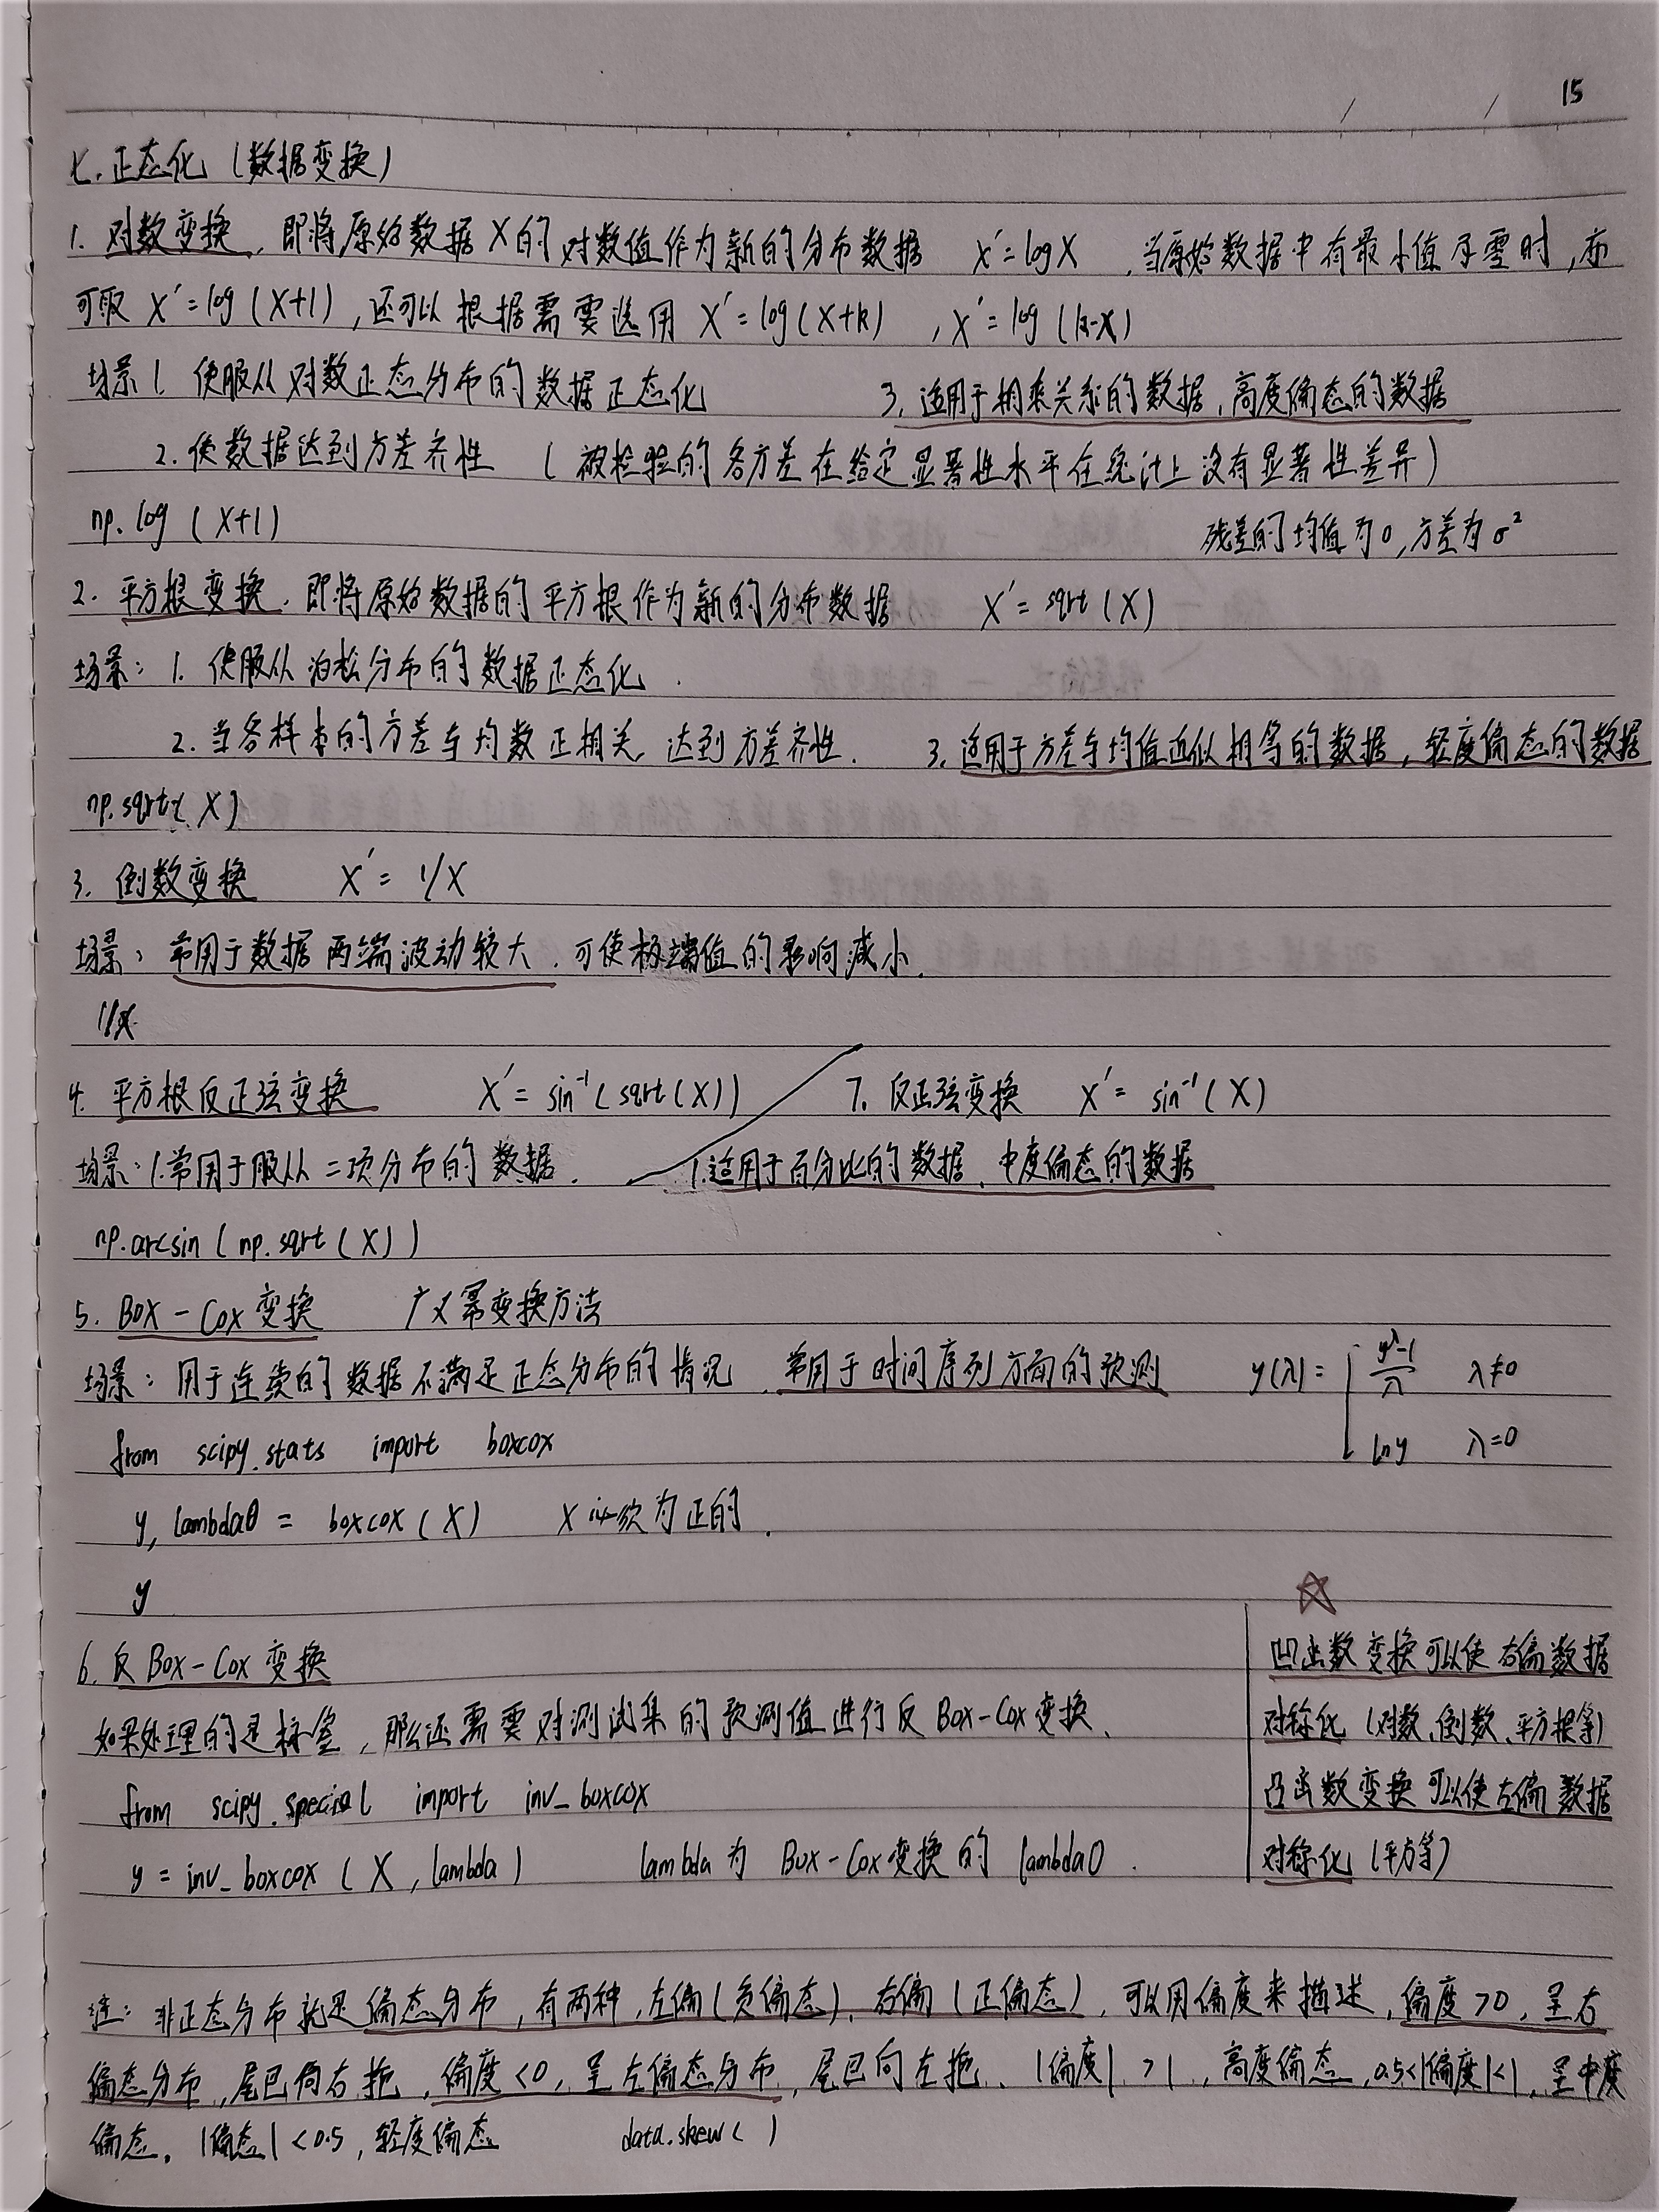 15
七.正态化（数据变换）
1. 对数变换，即将原始数据X的对数值作为新的分布数据 X'=logX ，当原始数据中有最小值及零时，亦
可取 X'=log(X+1)，还可以根据需要选用 X'=log(X+k) ，X'=log(k-X)
场景 1. 使服从对数正态分布的数据正态化 3. 适用于相乘关系的数据，高度偏态的数据
2. 使数据达到方差齐性 （被检验的各方差在给定显著性水平在统计上没有显著性差异）
np.log (X+1) 残差的均值为0，方差为σ²
2. 平方根变换，即将原始数据的平方根作为新的分布数据 X'=sqrt(X)
场景：1. 使服从泊松分布的数据正态化.
2. 当各样本的方差与均数正相关，达到方差齐性. 3. 适用于方差与均值近似相等的数据，轻度偏态的数据
np.sqrt(X)
3. 倒数变换 X'=1/X
场景：常用于数据两端波动较大，可使极端值的影响减小.
1/X
4. 平方根反正弦变换 X'=sin⁻¹(sqrt(X)) 7. 反正弦变换 X'=sin⁻¹(X)
场景：1.常用于服从二项分布的数据. 1.适用于百分比的数据、中度偏态的数据
np.arcsin(np.sqrt(X))
5. Box-Cox变换 广义幂变换方法
场景：用于连续的数据不满足正态分布的情况，常用于时间序列方面的预测 y(λ)= { (y^λ-1)/λ λ≠0
from scipy.stats import boxcox lny λ=0
y, lambda0 = boxcox(X) X必须为正的.
y ☆
6. 反Box-Cox变换 凹函数变换可以使右偏数据
如果处理的是标签，那么还需要对测试集的预测值进行反Box-Cox变换、 对称化（对数、倒数、平方根等）
from scipy.special import inv_boxcox 凸函数变换可以使左偏数据
y = inv_boxcox(X, lambda) lambda为Box-Cox变换的lambda0. 对称化（平方等）
注：非正态分布就是偏态分布，有两种，左偏（负偏态）、右偏（正偏态），可以用偏度来描述，偏度>0，呈右
偏态分布，尾巴向右拖，偏度<0，呈左偏态分布，尾巴向左拖、|偏度|>1，高度偏态，0.5<|偏度|<1，呈中度
偏态。|偏态|<0.5，轻度偏态 data.skew()